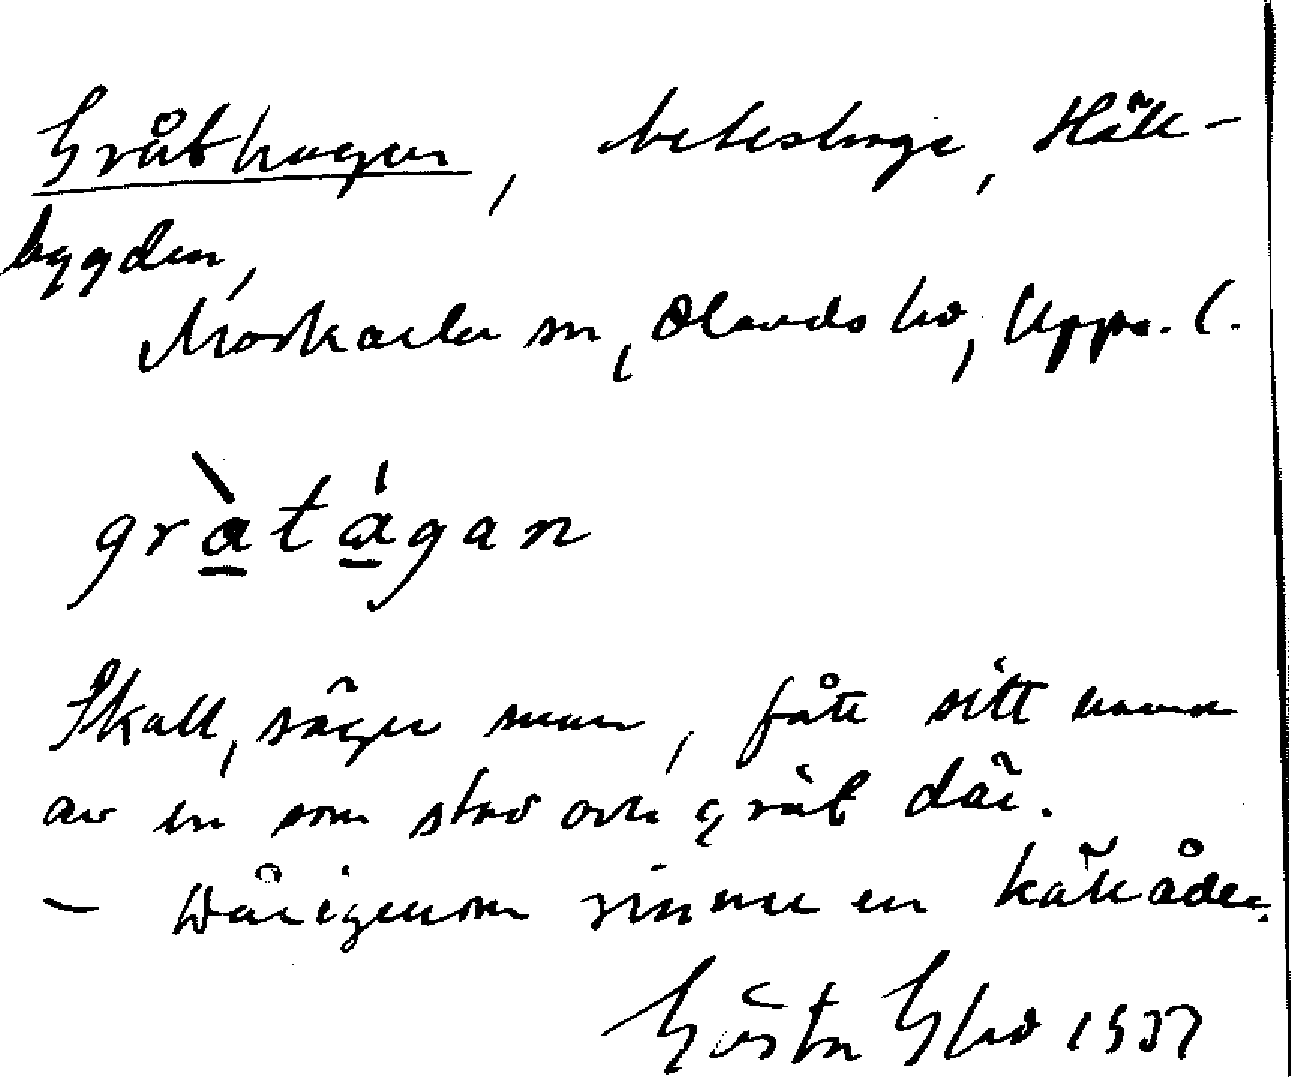 Gråthagen, beteshage, Häll-
bygden,
Morkarla sn, Olands hd, Upps. l.
gràtágan
Skall, säger man, fått sitt namn
av en som stod och grät där.
— Därigenom rinner en källåder.
Gösta 1937